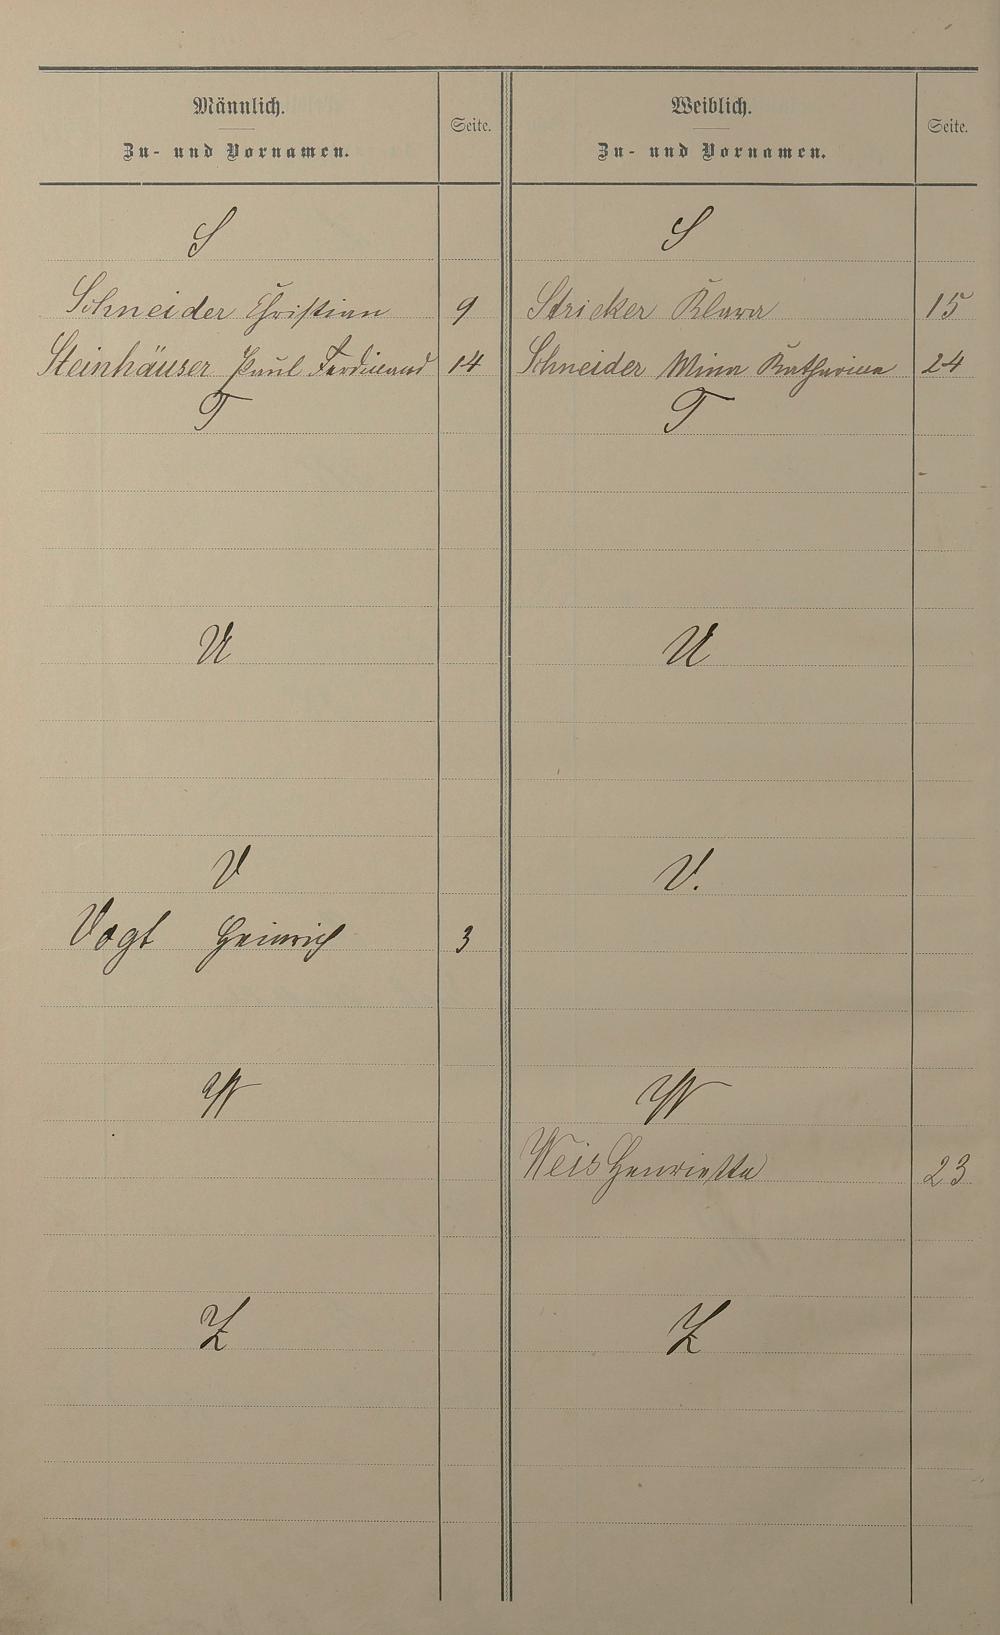 Männlich.
Zu- und Vornamen.
Seite.
S
Schneider Christian 9
Steinhäuser Paul Ferdinand 14
T
U
V
Vogt Heinrich 3
W
Z
Weiblich.
Zu- und Vornamen.
Seite.
S
Stricker Klara 15
Schneider Mina Katharina 24
T
U
V.
W
Weis Henriette 23
Z